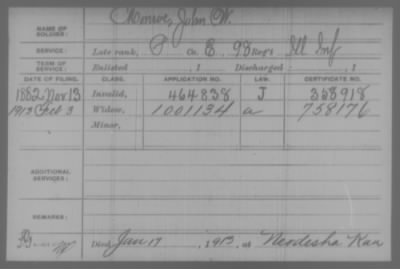 NAME OF SOLDIER: Monroe, John W.
SERVICE: Late rank, P Co. E, 98 Reg't Ill Inf
TERM OF SERVICE: Enlisted , 1 Discharged , 1
DATE OF FILING. CLASS. APPLICATION NO. LAW. CERTIFICATE NO.
1882 Nov 13 Invalid, 464838 J 358918
1913 Feb 3 Widow, 1001134 a 758176
Minor,
ADDITIONAL SERVICES:
REMARKS:
Died Jan 17, 1913, at Neodesha Kan